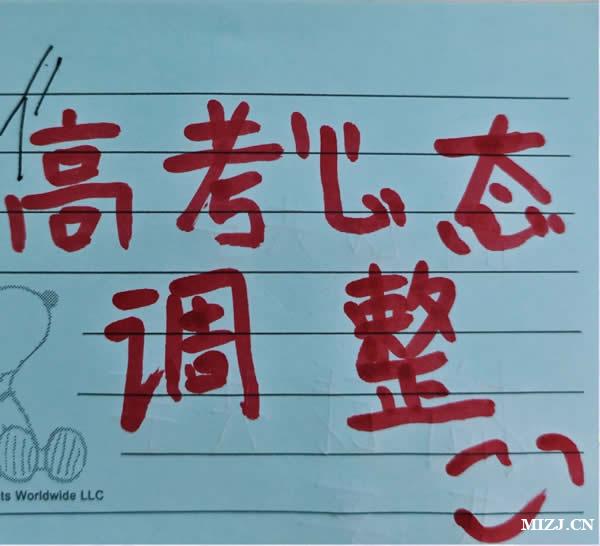 高考心态
调整
ts Worldwide LLC
MIZJ.CN